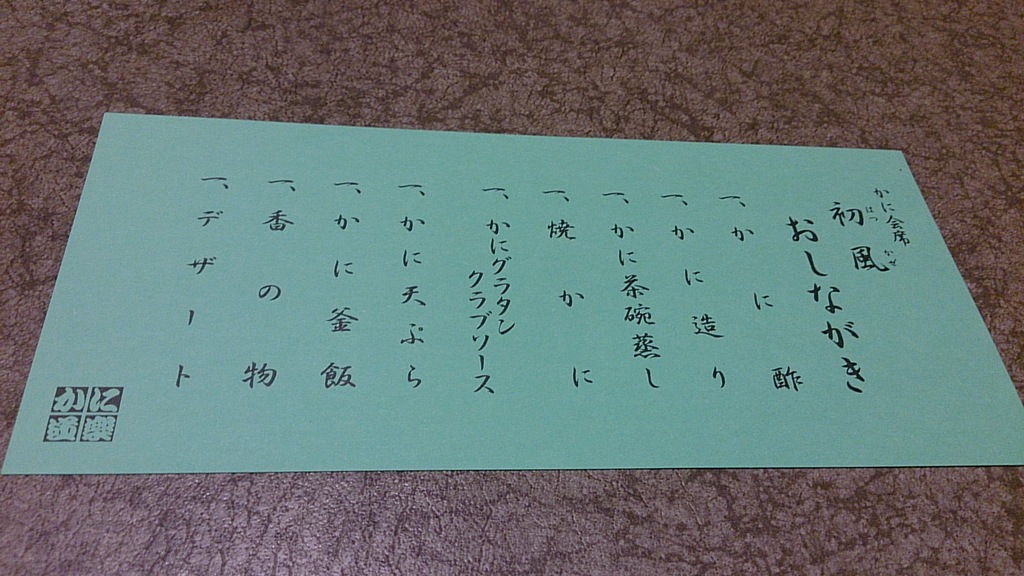 かに会席
初風
はつかぜ
おしながき
一、かに酢
一、かに造り
一、かに茶碗蒸し
一、焼かに
一、かにグラタン
クラブソース
一、かに天ぷら
一、かに釜飯
一、香の物
一、デザート
かに道楽